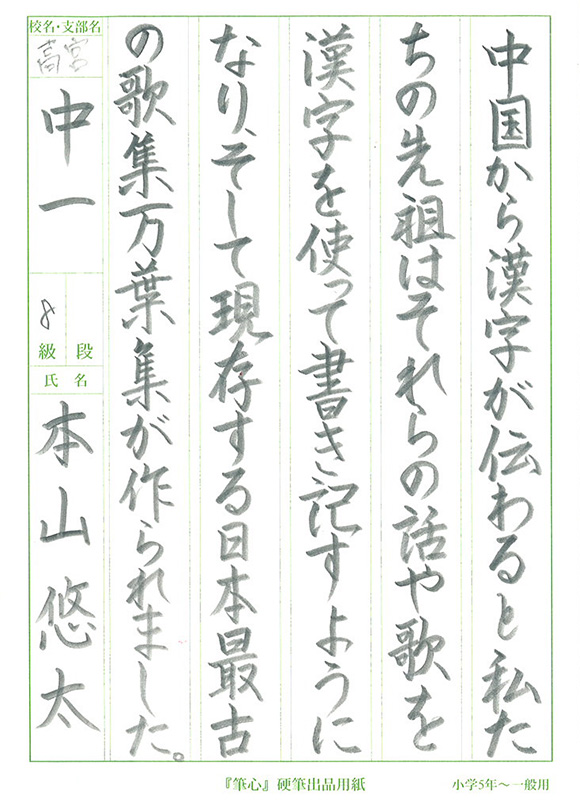 中国から漢字が伝わると私た
ちの先祖はそれらの話や歌を
漢字を使って書き記すように
なり、そして現存する日本最古
の歌集万葉集が作られました。
校名・支部名
高宮
中一
8
級 段
氏 名
本山悠太
『筆心』硬筆出品用紙
小学5年～一般用